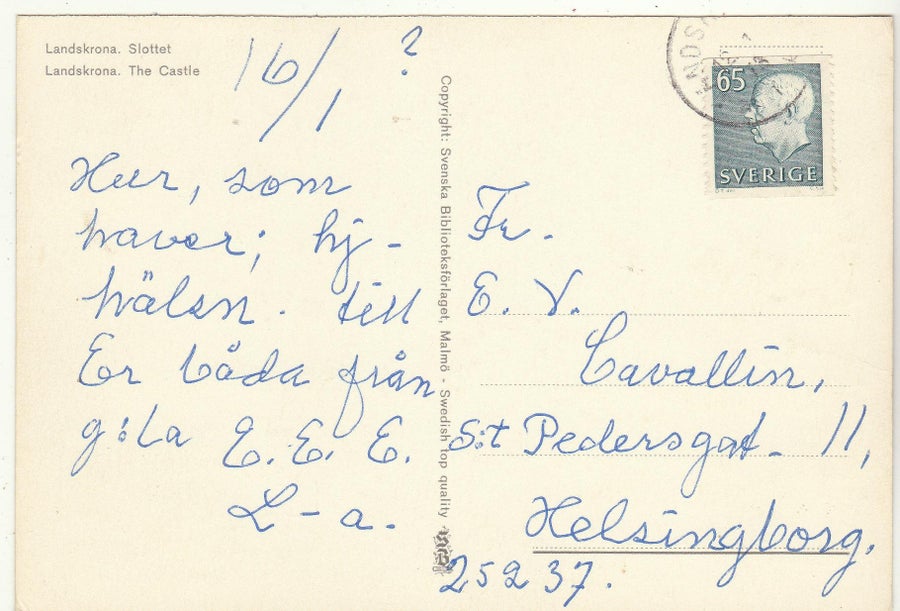 Landskrona. Slottet
Landskrona. The Castle
16/1 ?
Hur, som
haver; hj-
hälsn. till
Er båda från
g:la E. E. E.
L-a.
Copyright: Svenska Biblioteksförlaget, Malmö - Swedish top quality -
65
SVERIGE
Fr.
E. V.
Cavallin,
S:t Pedersgat- 11,
Helsingborg.
25237.